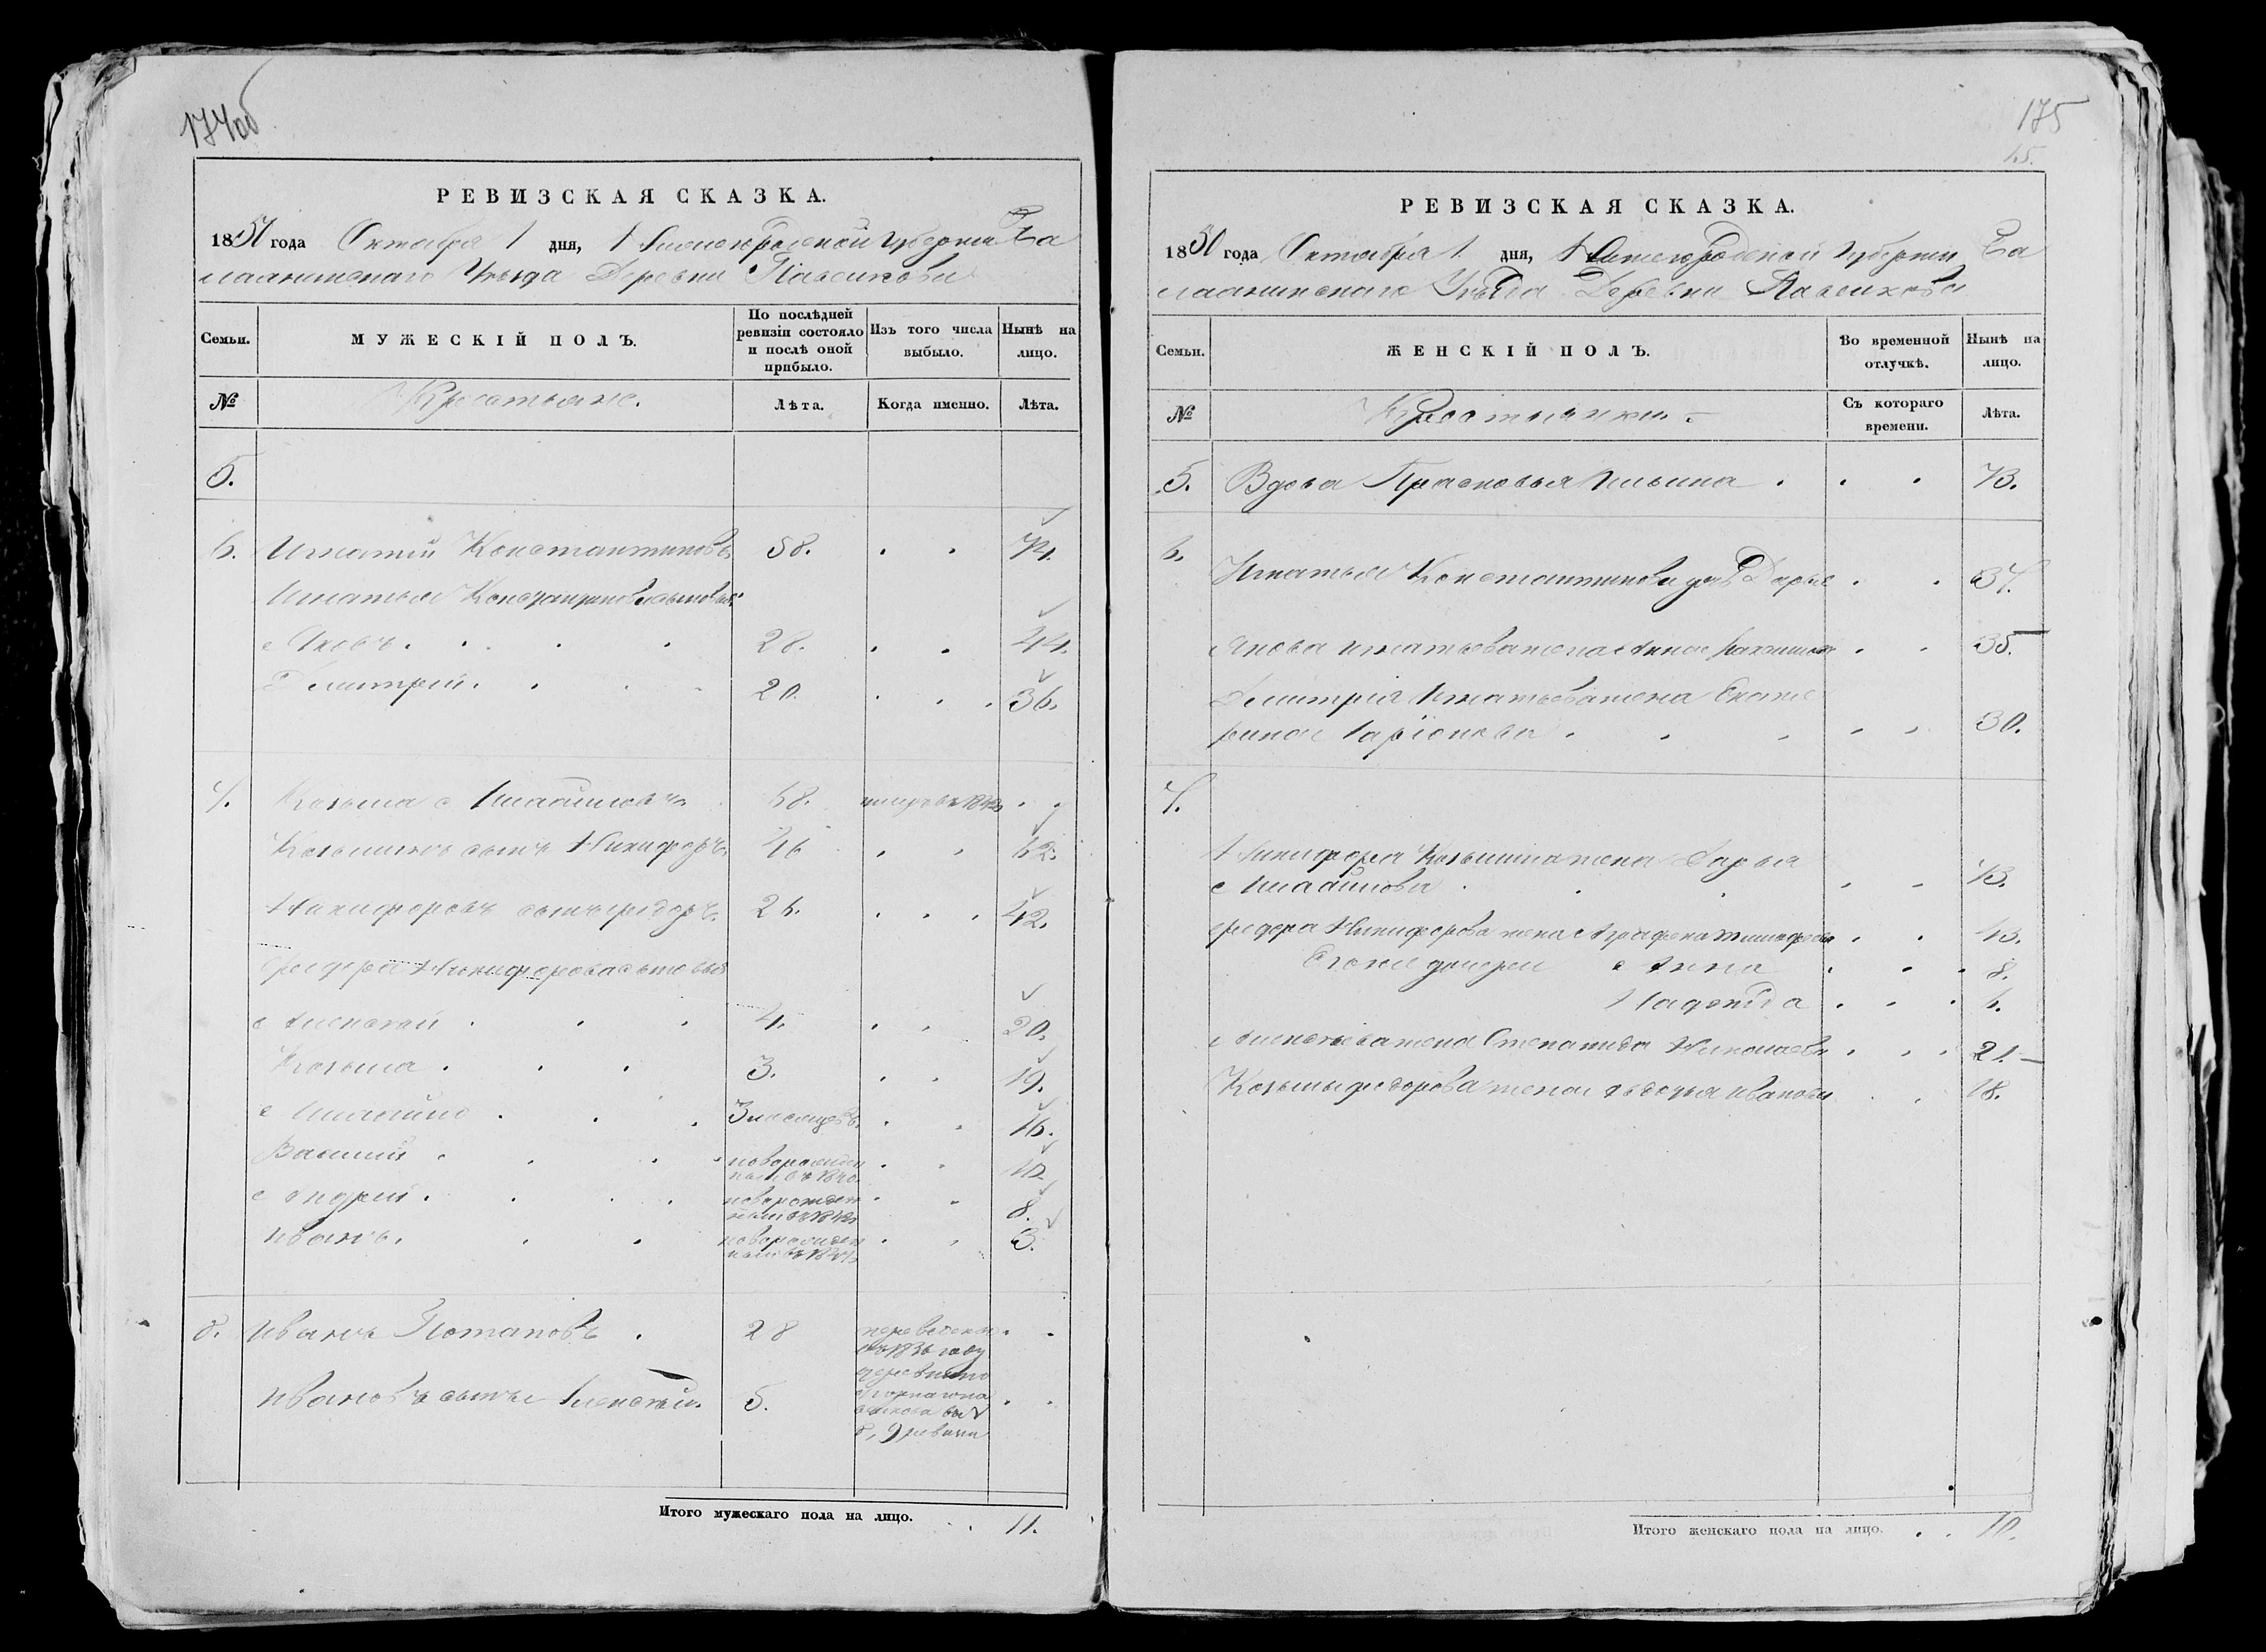 174об
РЕВИЗСКАЯ СКАЗКА.
1850 года Октября 1 дня, Нижегородской Губернии Ба
лахнинскаго Уѣзда Деревни
Семьи.
МУЖЕСКІЙ ПОЛЪ.
По послѣдней ревизіи состояло и послѣ оной прибыло.
Изъ того числа выбыло.
Нынѣ на лицо.
№
Крестьяне.
Лѣта.
Когда именно.
Лѣта.
5.
6. Игнатій Константиновъ 58. 74.
Игнатья Константинова сыновья
Яковъ. 28. 44.
Димитрій. 20. 36.
7. Козьма 68.
Козьминъ сынъ Никифоръ. 46 62.
Никифоровъ сынъ Федоръ. 26. 42.
Федора Никифорова сыновья
Алексѣй 4. 20.
Козьма 3. 19.
3 месяцовъ 16.
Василій новорожден
ный въ 1840. 10.
Андрей новорожден
ный въ 1842 8.
Иванъ. новорожден
3.
8. Иванъ Потаповъ 28 переведены
въ 1836 году
Ивановъ сынъ Алексѣй. 5.
Итого мужескаго пола на лицо. 11.
175
15.
РЕВИЗСКАЯ СКАЗКА.
1850 года Октября 1 дня, Нижегородской Губернии Ба
лахнинскаго Уѣзда Деревни
Семьи.
ЖЕНСКІЙ ПОЛЪ.
Во временной отлучкѣ.
Нынѣ на лицо.
№
Крестьянки
Съ котораго времени.
Лѣта.
5. Вдова Прасковья Ильина 73.
6.
Игнатья Константинова Дарья
Якова Игнатьева жена Анна 35.
Димитрія Игнатьева жена Екате
рина Ларіонова 30.
7.
Никифора Козьмина жена Дарья
Федора Никифорова жена Аграфена 43.
Его же дочери Анна 8.
Надежда 6.
Алексѣева жена Степанида Николаева 21.
Козьмы Федорова жена Авдотья Иванова 18.
Итого женскаго пола на лицо. 10.